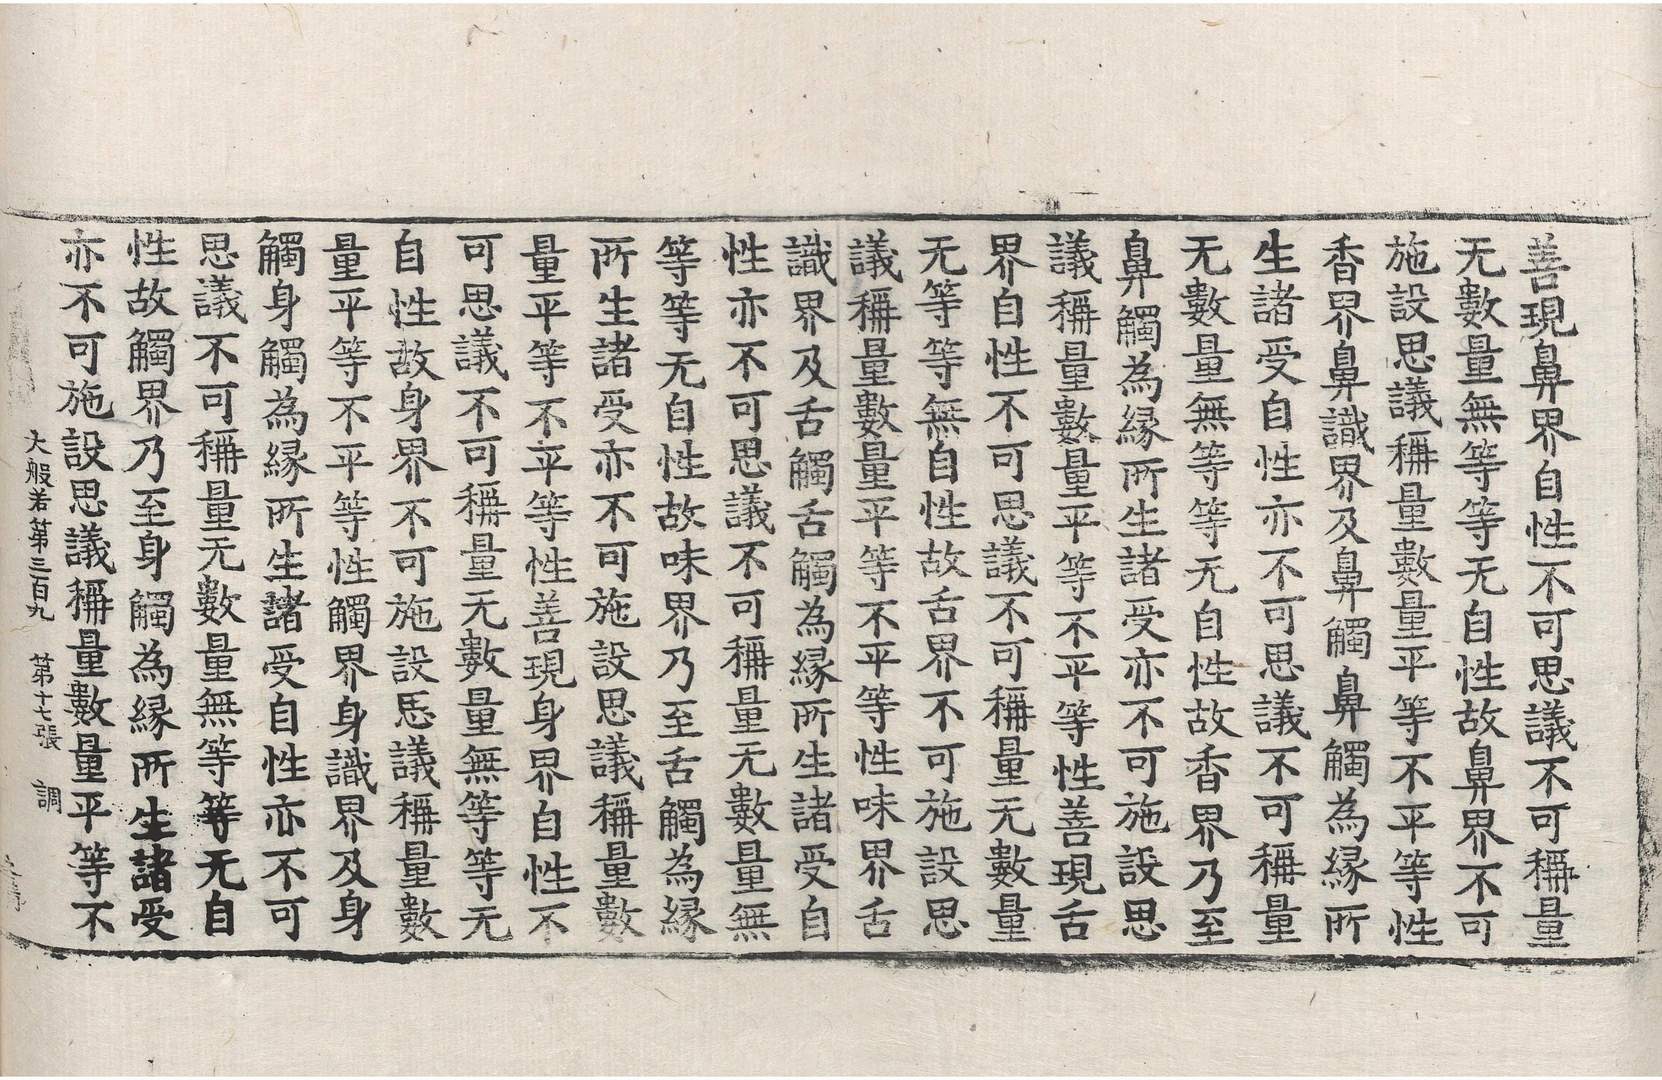 善現鼻界自性不可思議不可稱量
无數量無等等无自性故鼻界不可
施設思議稱量數量平等不平等性
香界鼻識界及鼻觸鼻觸為緣所
生諸受自性亦不可思議不可稱量
无數量無等等无自性故香界乃至
鼻觸為緣所生諸受亦不可施設思
議稱量數量平等不平等性善現舌
界自性不可思議不可稱量无數量
无等等無自性故舌界不可施設思
議稱量數量平等不平等性味界舌
識界及舌觸舌觸為緣所生諸受自
性亦不可思議不可稱量无數量無
等等无自性故味界乃至舌觸為緣
所生諸受亦不可施設思議稱量數
量平等不平等性善現身界自性不
可思議不可稱量无數量無等等无
自性故身界不可施設思議稱量數
量平等不平等性觸界身識界及身
觸身觸為緣所生諸受自性亦不可
思議不可稱量无數量無等等无自
性故觸界乃至身觸為緣所生諸受
亦不可施設思議稱量數量平等不
大般若第三百九 第十七張 調